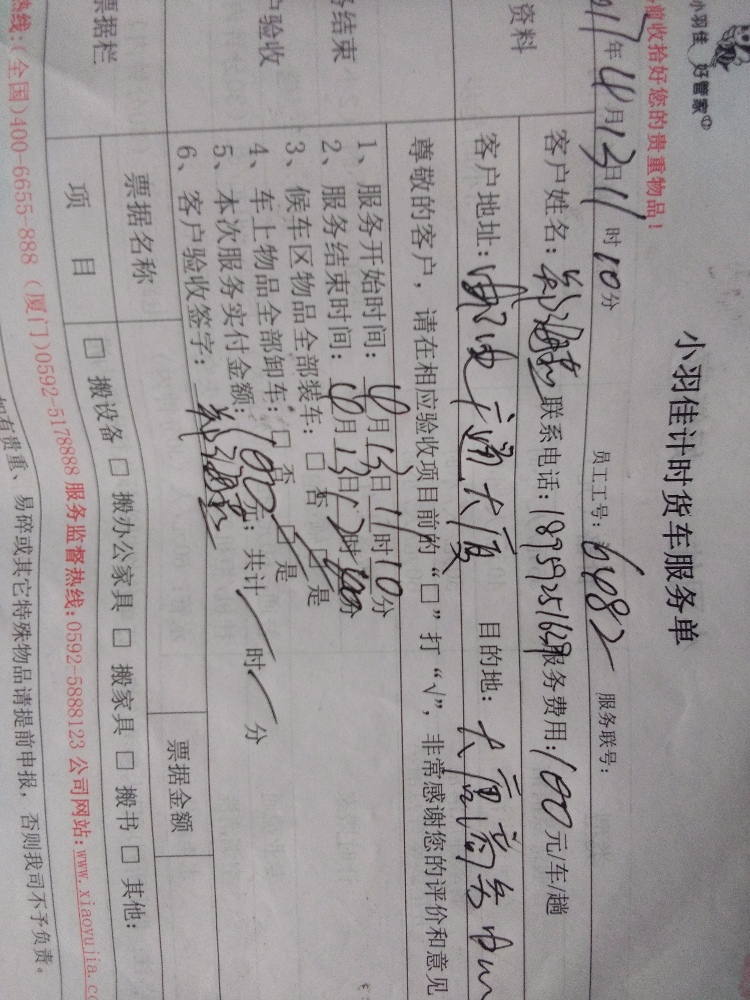 小羽佳 好管家
前收拾好您的贵重物品!
小羽佳计时货车服务单
年4月13日11时10分 员工工号: 6482 服务联号:
资料
客户姓名: 联系电话: 18959251629 服务费用: 100元/车/趟
客户地址: 邮电 大厦 目的地: 大唐商务
尊敬的客户,请在相应验收项目前的“□”打“√”,非常感谢您的评价和意见
务结束
户验收
1、服务开始时间: 4月13日11时10分
2、服务结束时间: 4月13日12时00分
3、候车区物品全部装车: □ 否 □ 是
4、车上物品全部卸车: □ 否 □ 是
5、本次服务实付金额: 100元; 共计 / 时 / 分
6、客户验收签字:
票据栏
票据名称 票据金额
项 目 □ 搬设备 □ 搬办公家具 □ 搬家具 □ 搬书 □ 其他:
热线:(全国)400-6655-888 (厦门)0592-5178888 服务监督热线:0592-5888123 公司网站:www.xiaoyujia.co
如有贵重、易碎或其它特殊物品请提前申报,否则我司不予负责。